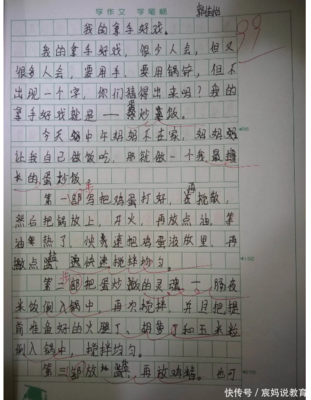 学作文 学笔顺
我的拿手好戏。
我的拿手好戏，很少人会，但又
很多人会，要用手、要用锅铲，但不
出现一个字，你们猜得出来吗？我的
拿手好戏就是——蛋炒饭。
今天妈中午妈妈不在家，妈妈
让我自己做饭吃，那就做一个我最擅
长的蛋炒饭。
第一部写把鸡蛋打好，搅散，
然后把锅放上，开火，再放点油，等
油热了，快速把鸡蛋液放里，再
撒点盐，快速搅拌均匀。
第二部把蛋炒饭的灵魂——隔夜
米饭倒入锅中，再次搅拌，并且把提
前准备好的火腿丁、胡萝丁和玉米粒
倒入锅中，搅拌均匀。
第三部放盐，再放鸡精。也可
快传号/宸妈说教育